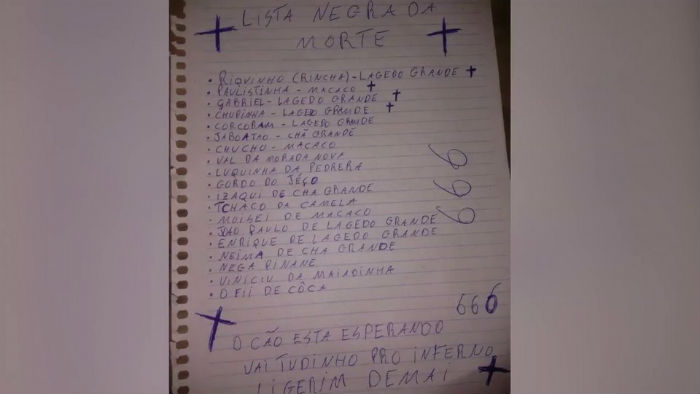 LISTA NEGRA DA
MORTE
• RIQUINHO (RINCHA) - LAGEDO GRANDE
• PAULISTINHA - MACACO
• GABRIEL - LAGEDO GRANDE
• CHUPINHA - LAGEDO GRANDE
• CORCORAM - LAGEDO GRANDE
• JABOATAO - CHÃ GRANDE
• CHUCHO - MACACO
• VAL DA MORADA NOVA
• LUQUINHA DA PEDRERA
• GORDO DO JÊGO
• IZAQUI DE CHA GRANDE
• TCHACO DA CAMELA
• MOISEI DE MACACO
• JOAO PAULO DE LAGEDO GRANDE
• ENRIQUE DE LAGEDO GRANDE
• NEIMA DE CHA GRANDE
• NEGA PINANE
• VINICIU DA MAIADINHA
• O FII DE CÔCA
666
666
O CÃO ESTA ESPERANDO
VAI TUDINHO PRO INFERNO
LIGERIM DEMAI